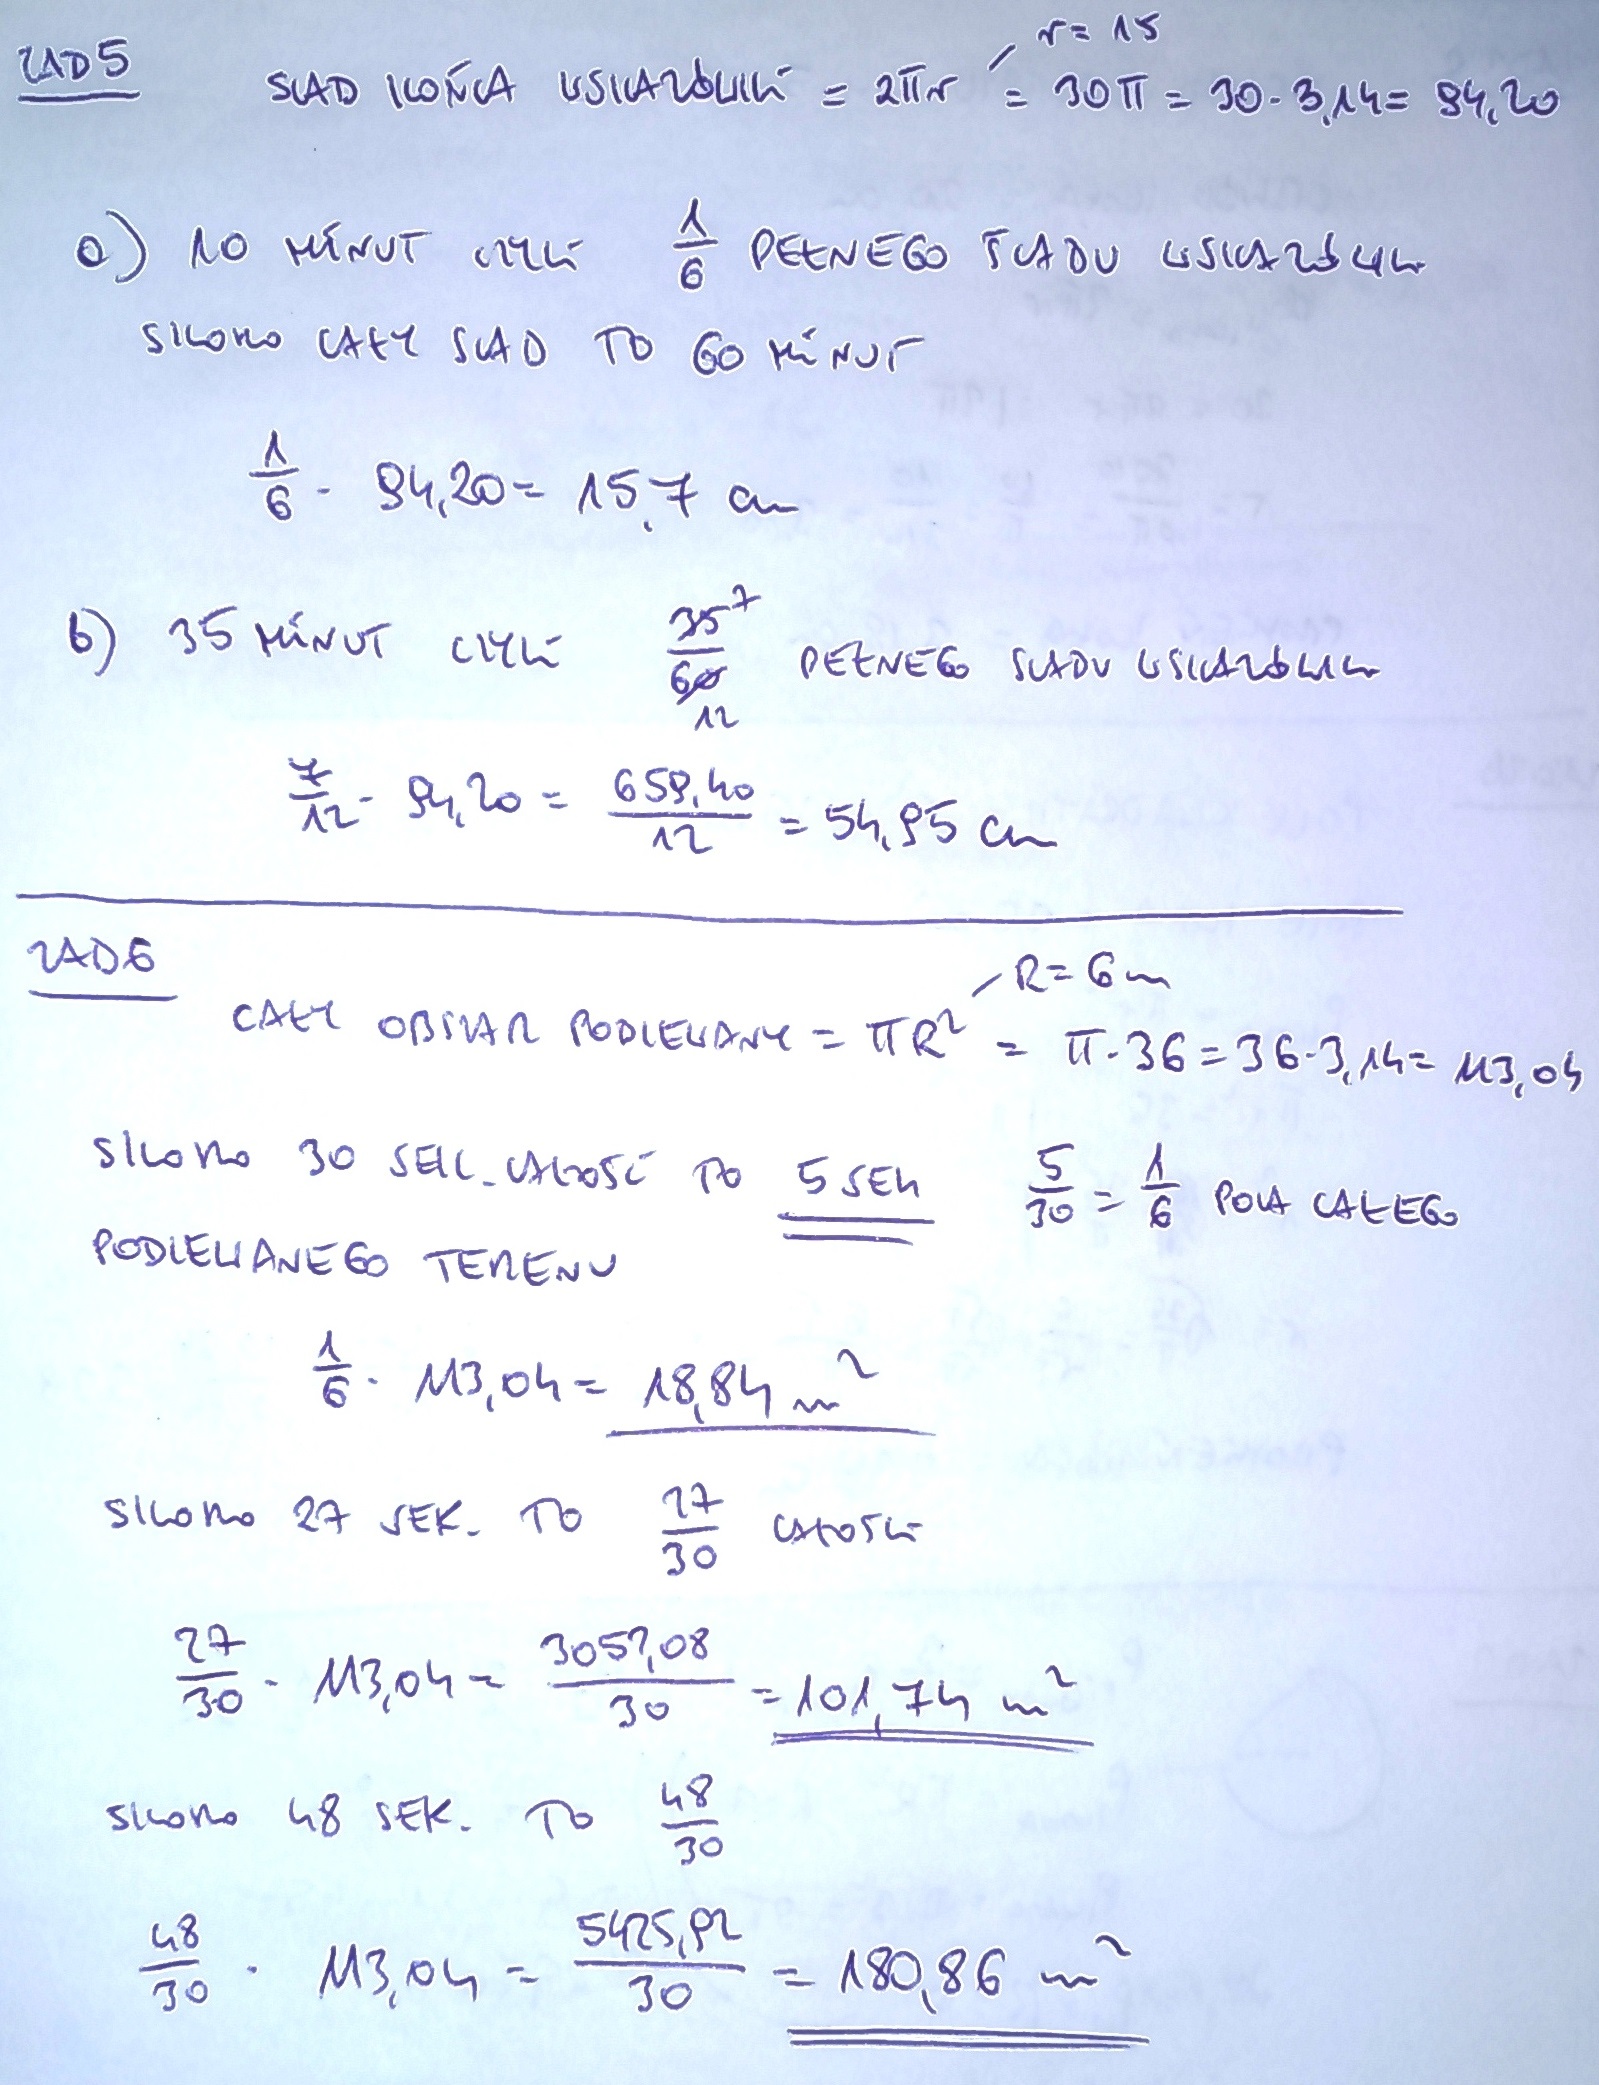 ZAD 5
r = 15
ŚLAD KOŃCA WSKAZÓWKI = 2πr = 30π = 30 · 3,14 = 94,20
a) 10 MINUT CZYLI 1/6 PEŁNEGO ŚLADU WSKAZÓWKI
SKORO CAŁY SLAD TO 60 MINUT
1/6 · 94,20 = 15,7 cm
b) 35 MINUT CZYLI 35/60 7/12 PEŁNEGO SLADU WSKAZÓWKI
7/12 · 94,20 = 659,40/12 = 54,95 cm
ZAD 6
R = 6 m
CAŁY OBSZAR PODLEWANY = πR² = π · 36 = 36 · 3,14 = 113,04
SKORO 30 SEK. CAŁOŚĆ TO 5 SEK 5/30 = 1/6 POLA CAŁEGO
PODLEWANEGO TERENU
1/6 · 113,04 = 18,84 m²
SKORO 27 SEK. TO 27/30 CAŁOŚCI
27/30 · 113,04 = 3052,08/30 = 101,74 m²
SKORO 48 SEK. TO 48/30
48/30 · 113,04 = 5425,92/30 = 180,86 m²